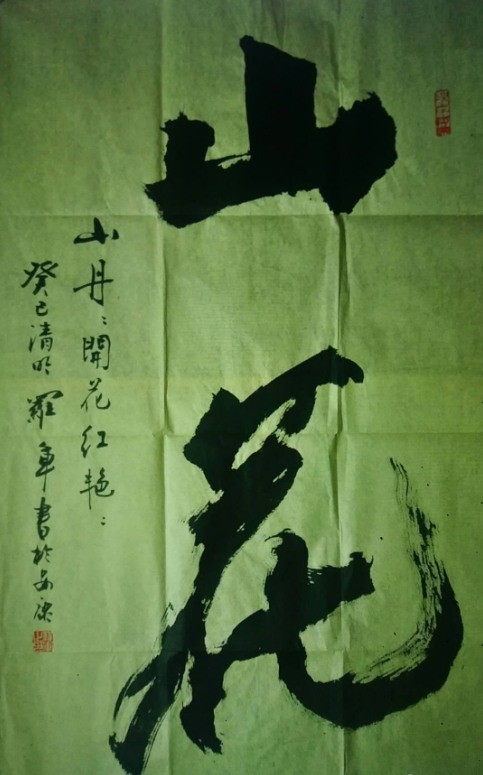 山花
山丹：開花红艳：
癸巳清明 羅章書於安康